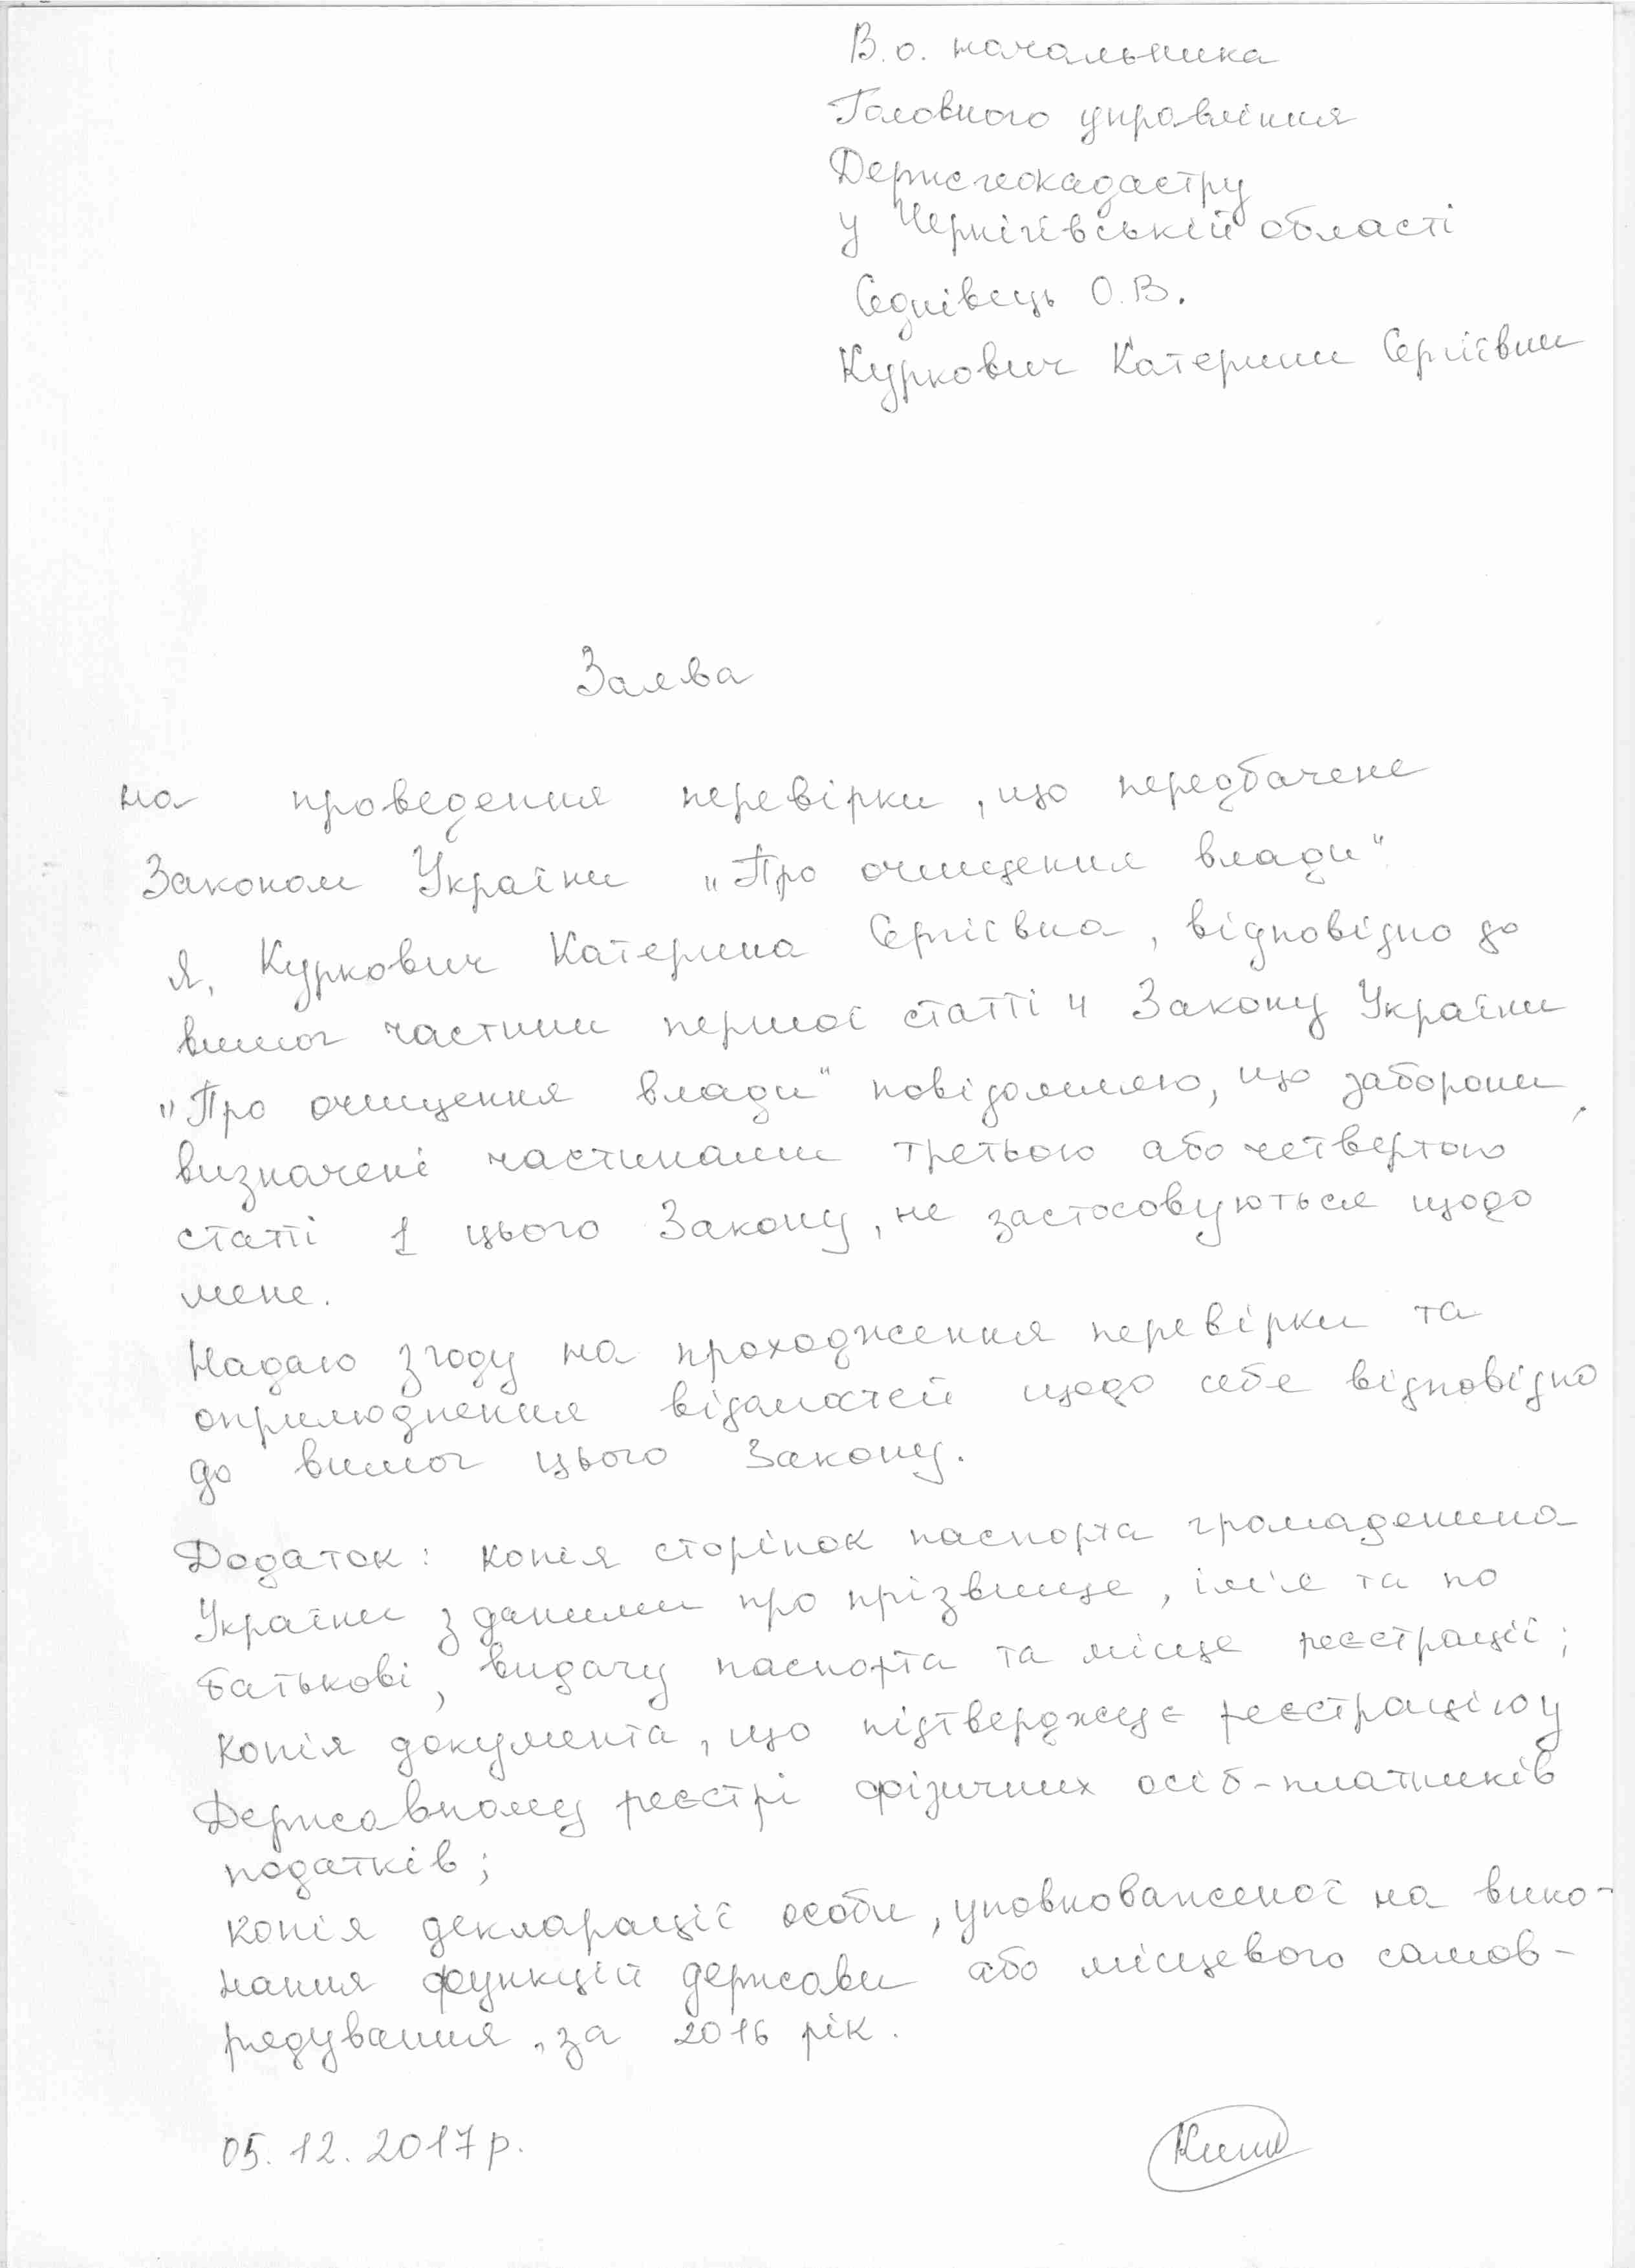 В.о. начальника
Головного управління
Держгеокадастру
у Чернігівській області
Седнівець О.В.
Куркович Катерини Сергіївни
Заява
на проведення перевірки, що передбачене
Законом України "Про очищення влади"
Я, Куркович Катерина Сергіївна, відповідно до
вимог частини першої статті 4 Закону України
"Про очищення влади" повідомляю, що заборони,
визначені частинами третьою або четвертою
статті 1 цього Закону, не застосовуються щодо
мене.
Надаю згоду на проходження перевірки та
оприлюднення відомостей щодо себе відповідно
до вимог цього Закону.
Додаток: копія сторінок паспорта громадянина
України з даними про прізвище, ім'я та по
батькові, видачу паспорта та місце реєстрації;
копія документа, що підтверджує реєстрацію у
Державному реєстрі фізичних осіб-платників
податків;
копія декларації особи, уповноваженої на вико-
нання функцій держави або місцевого самов-
рядування, за 2016 рік.
05.12.2017р.